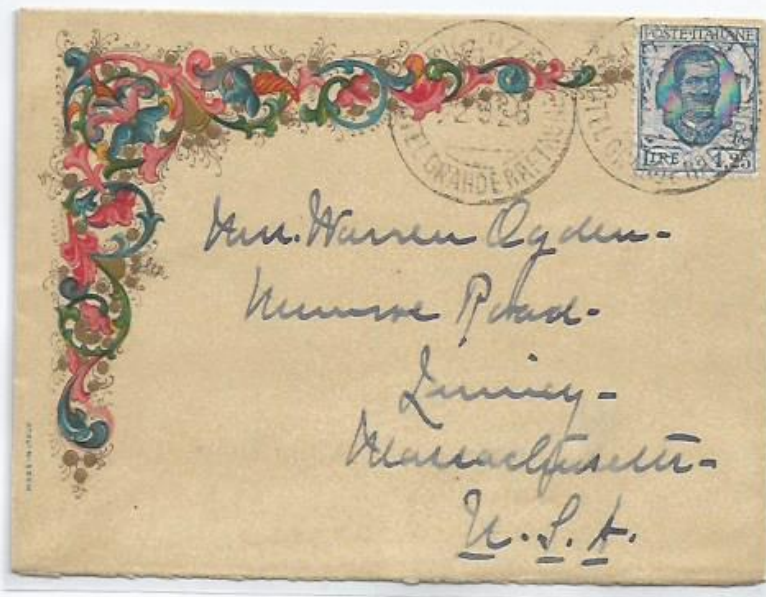 POSTE·ITALIANE
LIRE 1,25
GRANDE BRETAGNE
Mrs. Warren Ogden-
Road-
Quincy-
Massachusetts-
U.S.A.
MADE IN ITALY